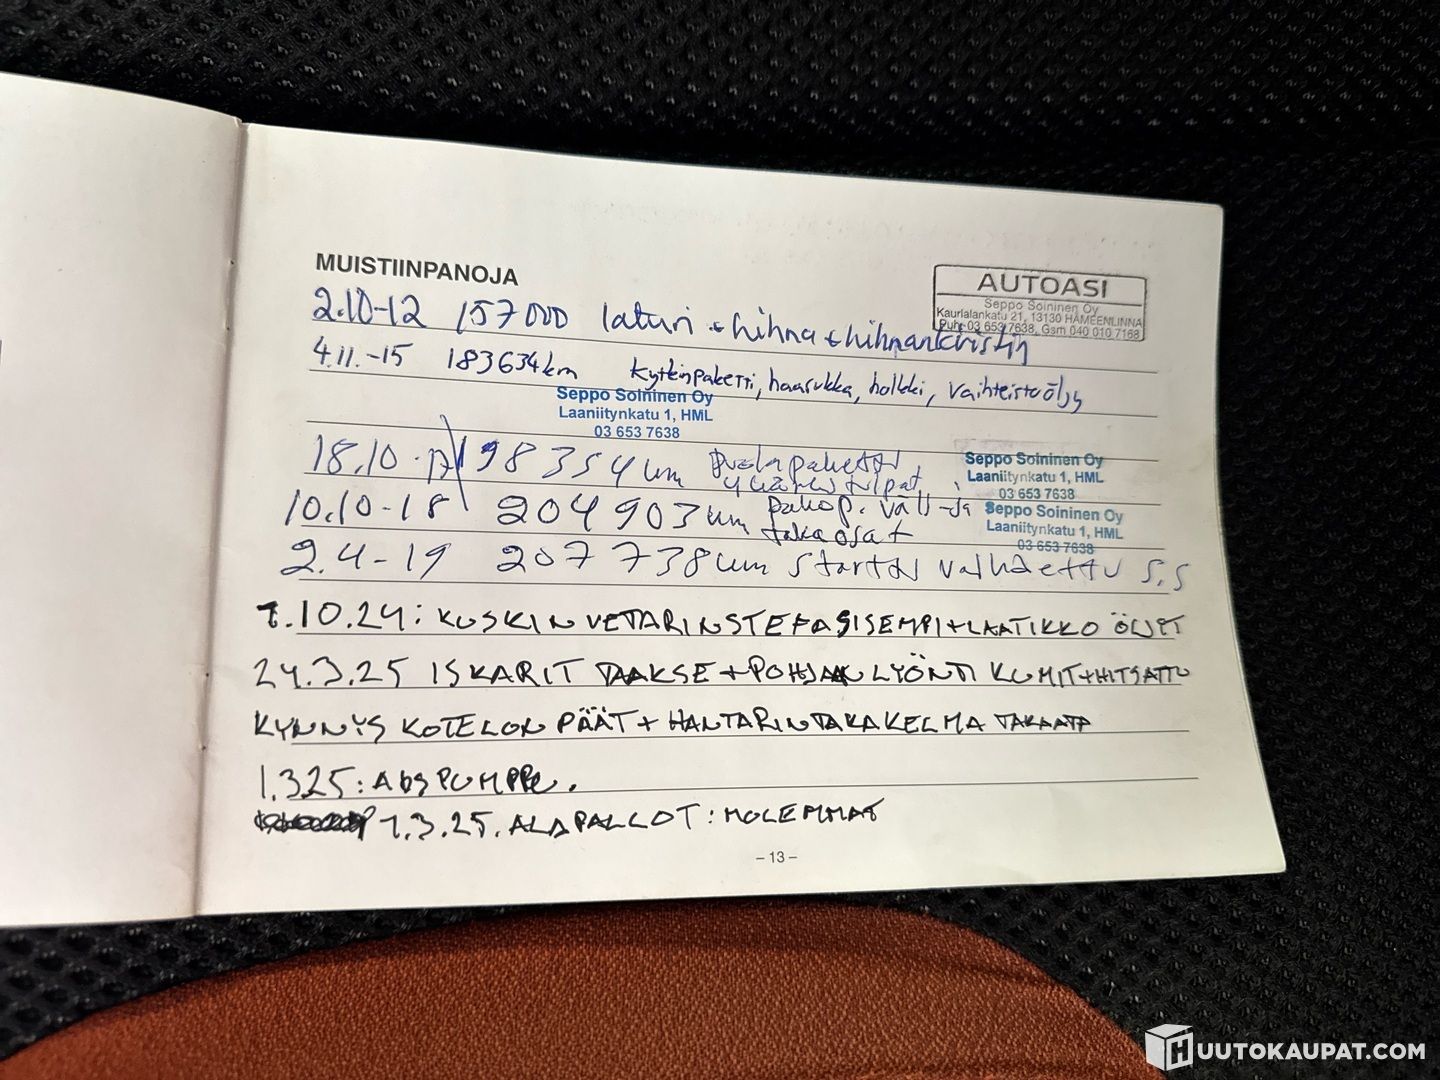 MUISTIINPANOJA
AUTOASI
Seppo Soininen Oy
Kaurialankatu 21, 13130 HÄMEENLINNA
Puh. 03 653 7638, Gsm 040 010 7168
2.10-12 157000 laturi + hihna + hihnankiristin
4.11.-15 183634km kytkinpaketti, haarukka, holkki, vaihteistoöljy
Seppo Soininen Oy
Laaniitynkatu 1, HML
03 653 7638
18.10-17 198354 km
Seppo Soininen Oy
Laaniitynkatu 1, HML
03 653 7638
10.10-18 204903 km pakop. väli-ja
takaosat
Seppo Soininen Oy
Laaniitynkatu 1, HML
03 653 7638
2.4-19 207738 km startti vaihdettu S.S
1.10.24: KUSKIN VETARIN STEFA SISEMPI+LAATIKKO ÖLJYT
24.3.25 ISKARIT TAAKSE + POHJAAN LYÖNTI KUMIT+HITSATTU
KYNNYS KOTELON PÄÄT + HANTARIN TAKAKELMA TAKAATA
1.3.25: Abs PUMPPU.
1.3.25. ALAPALLOT: MOLEMMAT
– 13 –
HUUTOKAUPAT.COM